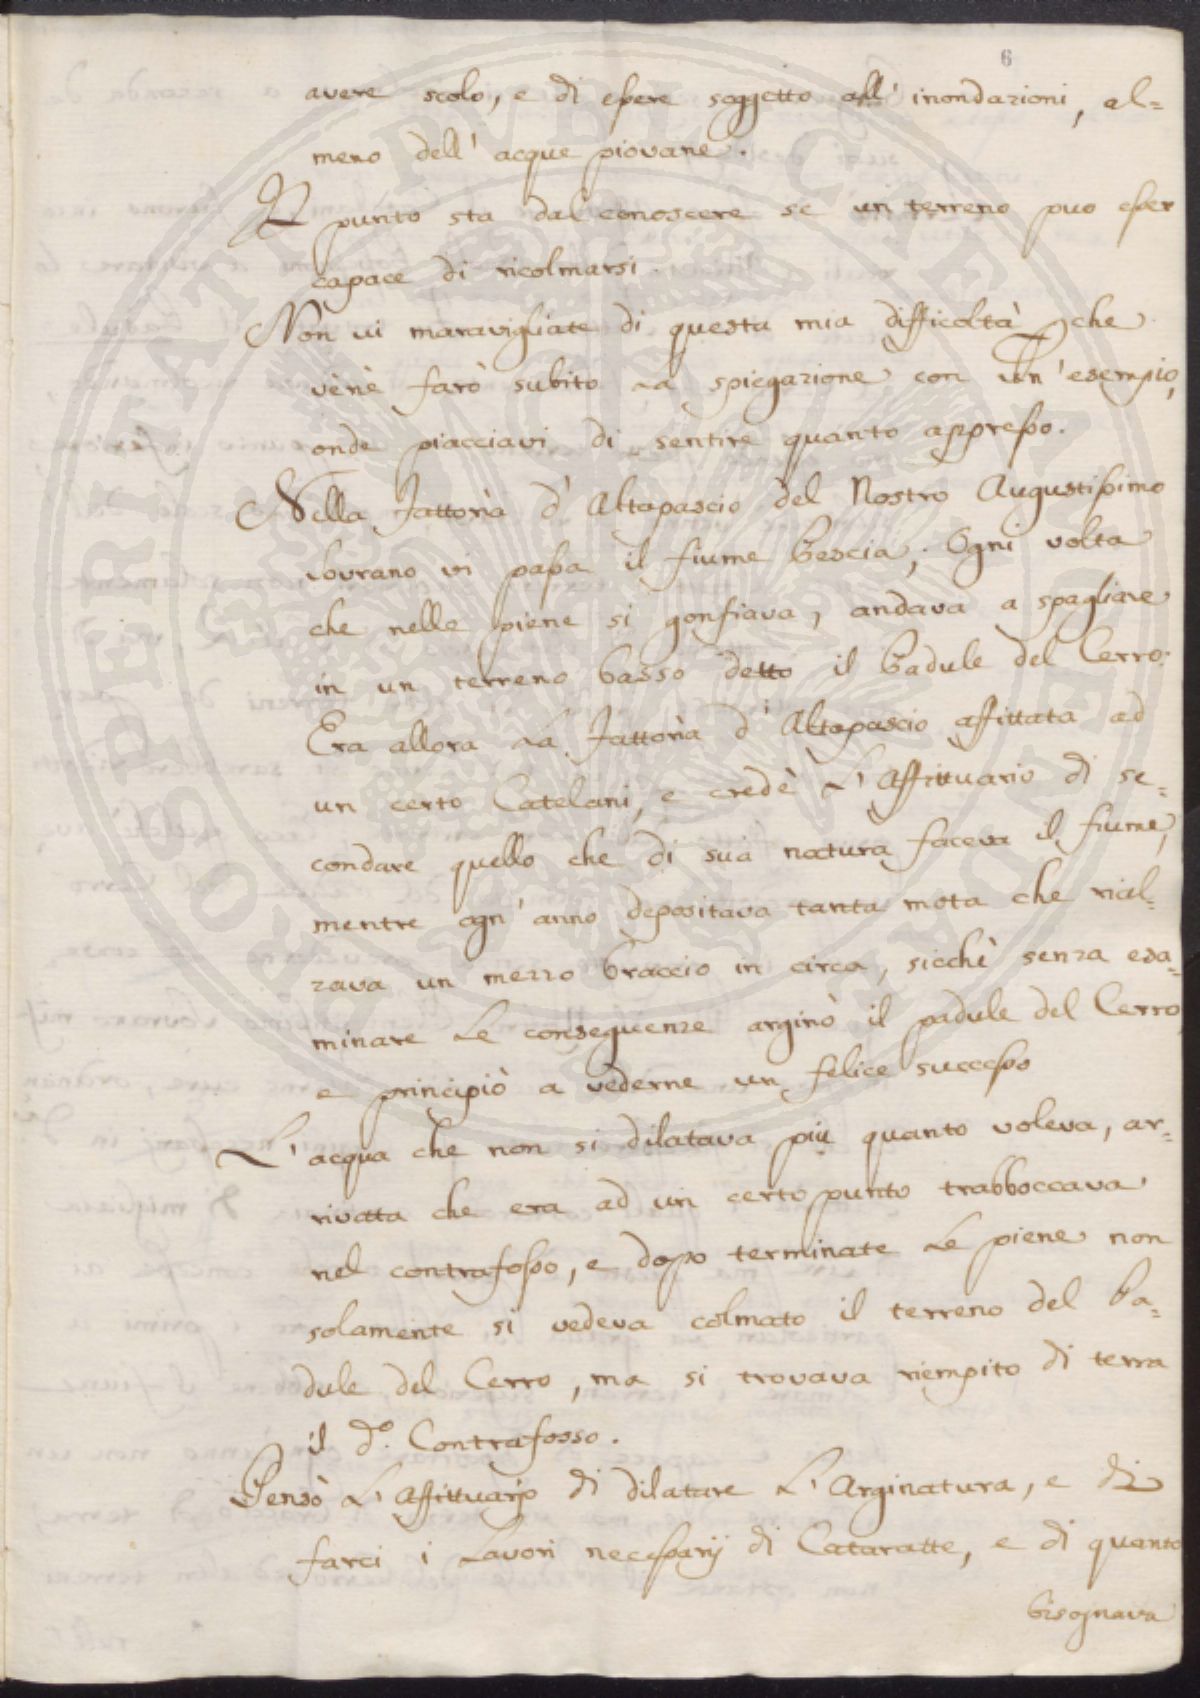 6
avere scolo, e di essere soggetto all' inondazioni, al=
meno dell' acque piovane.
Il punto sta dal conoscere se un terreno puo esser
capace di ricolmarsi.
Non vi maravigliate di questa mia difficoltà, che
vène farò subito La spiegazione con un' esempio,
onde piacciavi di sentire quanto appresso.
Nella Fattoria d' Altopascio del Nostro Augustissimo
Sovrano vi passa il fiume Pescia; Ogni volta
che nelle piene si gonfiava, andava a spagliare
in un terreno basso detto il Padule del Cerro.
Era allora La Fattoria d' Altopascio affittata ad
un certo Catelani, e credè L' Affittuario di se=
condare quello che di sua natura faceva il fiume,
mentre ogn' anno depositava tanta mota che rial=
zava un mezzo braccio in circa, sicchè senza esa=
minare Le conseguenze arginò il padule del Cerro
e principiò a vederne un felice successo
L' acqua che non si dilatava più quanto voleva, ar=
rivata che era ad un certo punto trabboccava
nel contrafosso, e dopo terminate Le piene non
solamente si vedeva colmato il terreno del Pa=
dule del Cerro, ma si trovava riempito di terra
il do. Contrafosso.
Pensò L' Affittuario di dilatare L' Arginatura, e di
farci i Lavori necessarij di Cataratte, e di quanto
bisognava
PROSPERITATI PVBLICAE AVGENDAE